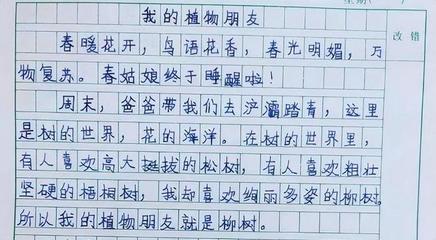 我的植物朋友
改错
春暖花开，鸟语花香，春光明媚，万
物复苏。春姑娘终于睡醒啦！
周末，爸爸带我们去浐灞踏青，这里
是树的世界，花的海洋。在树的世界里，
有人喜欢高大挺拔的松树，有人喜欢粗壮
坚硬的梧桐树，我却喜欢绚丽多姿的柳树，
所以我的植物朋友就是柳树。